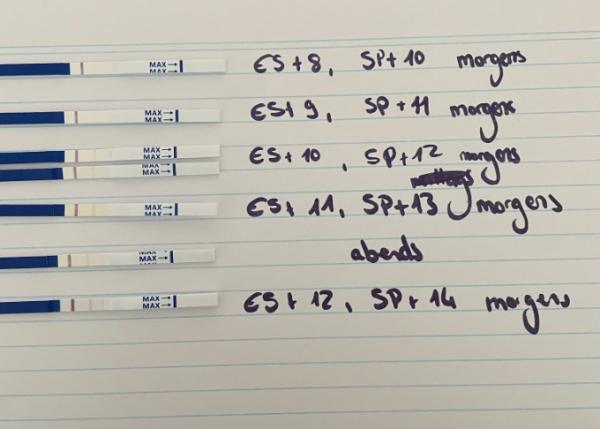 MAX→ ES+8, SP+10 morgens
MAX→
MAX→ ES+9, SP+11 morgens
MAX→
MAX→ ES+10, SP+12 morgens
MAX→
MAX→
MAX→
MAX→ ES+11, SP+13 morgens
MAX→
MAX→ abends
MAX→
MAX→ ES+12, SP+14 morgens
MAX→